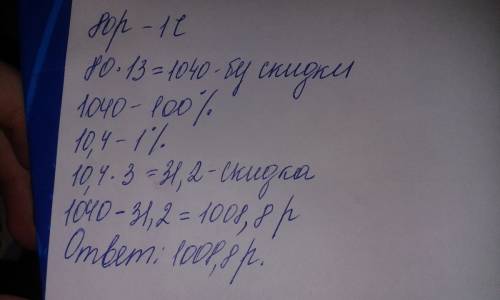 80р - 1 С
80·13=1040-бу скидки
1040-100%
10,4-1%
10,4·3=31,2-скидка
1040-31,2=1008,8 р
Ответ: 1008,8р.